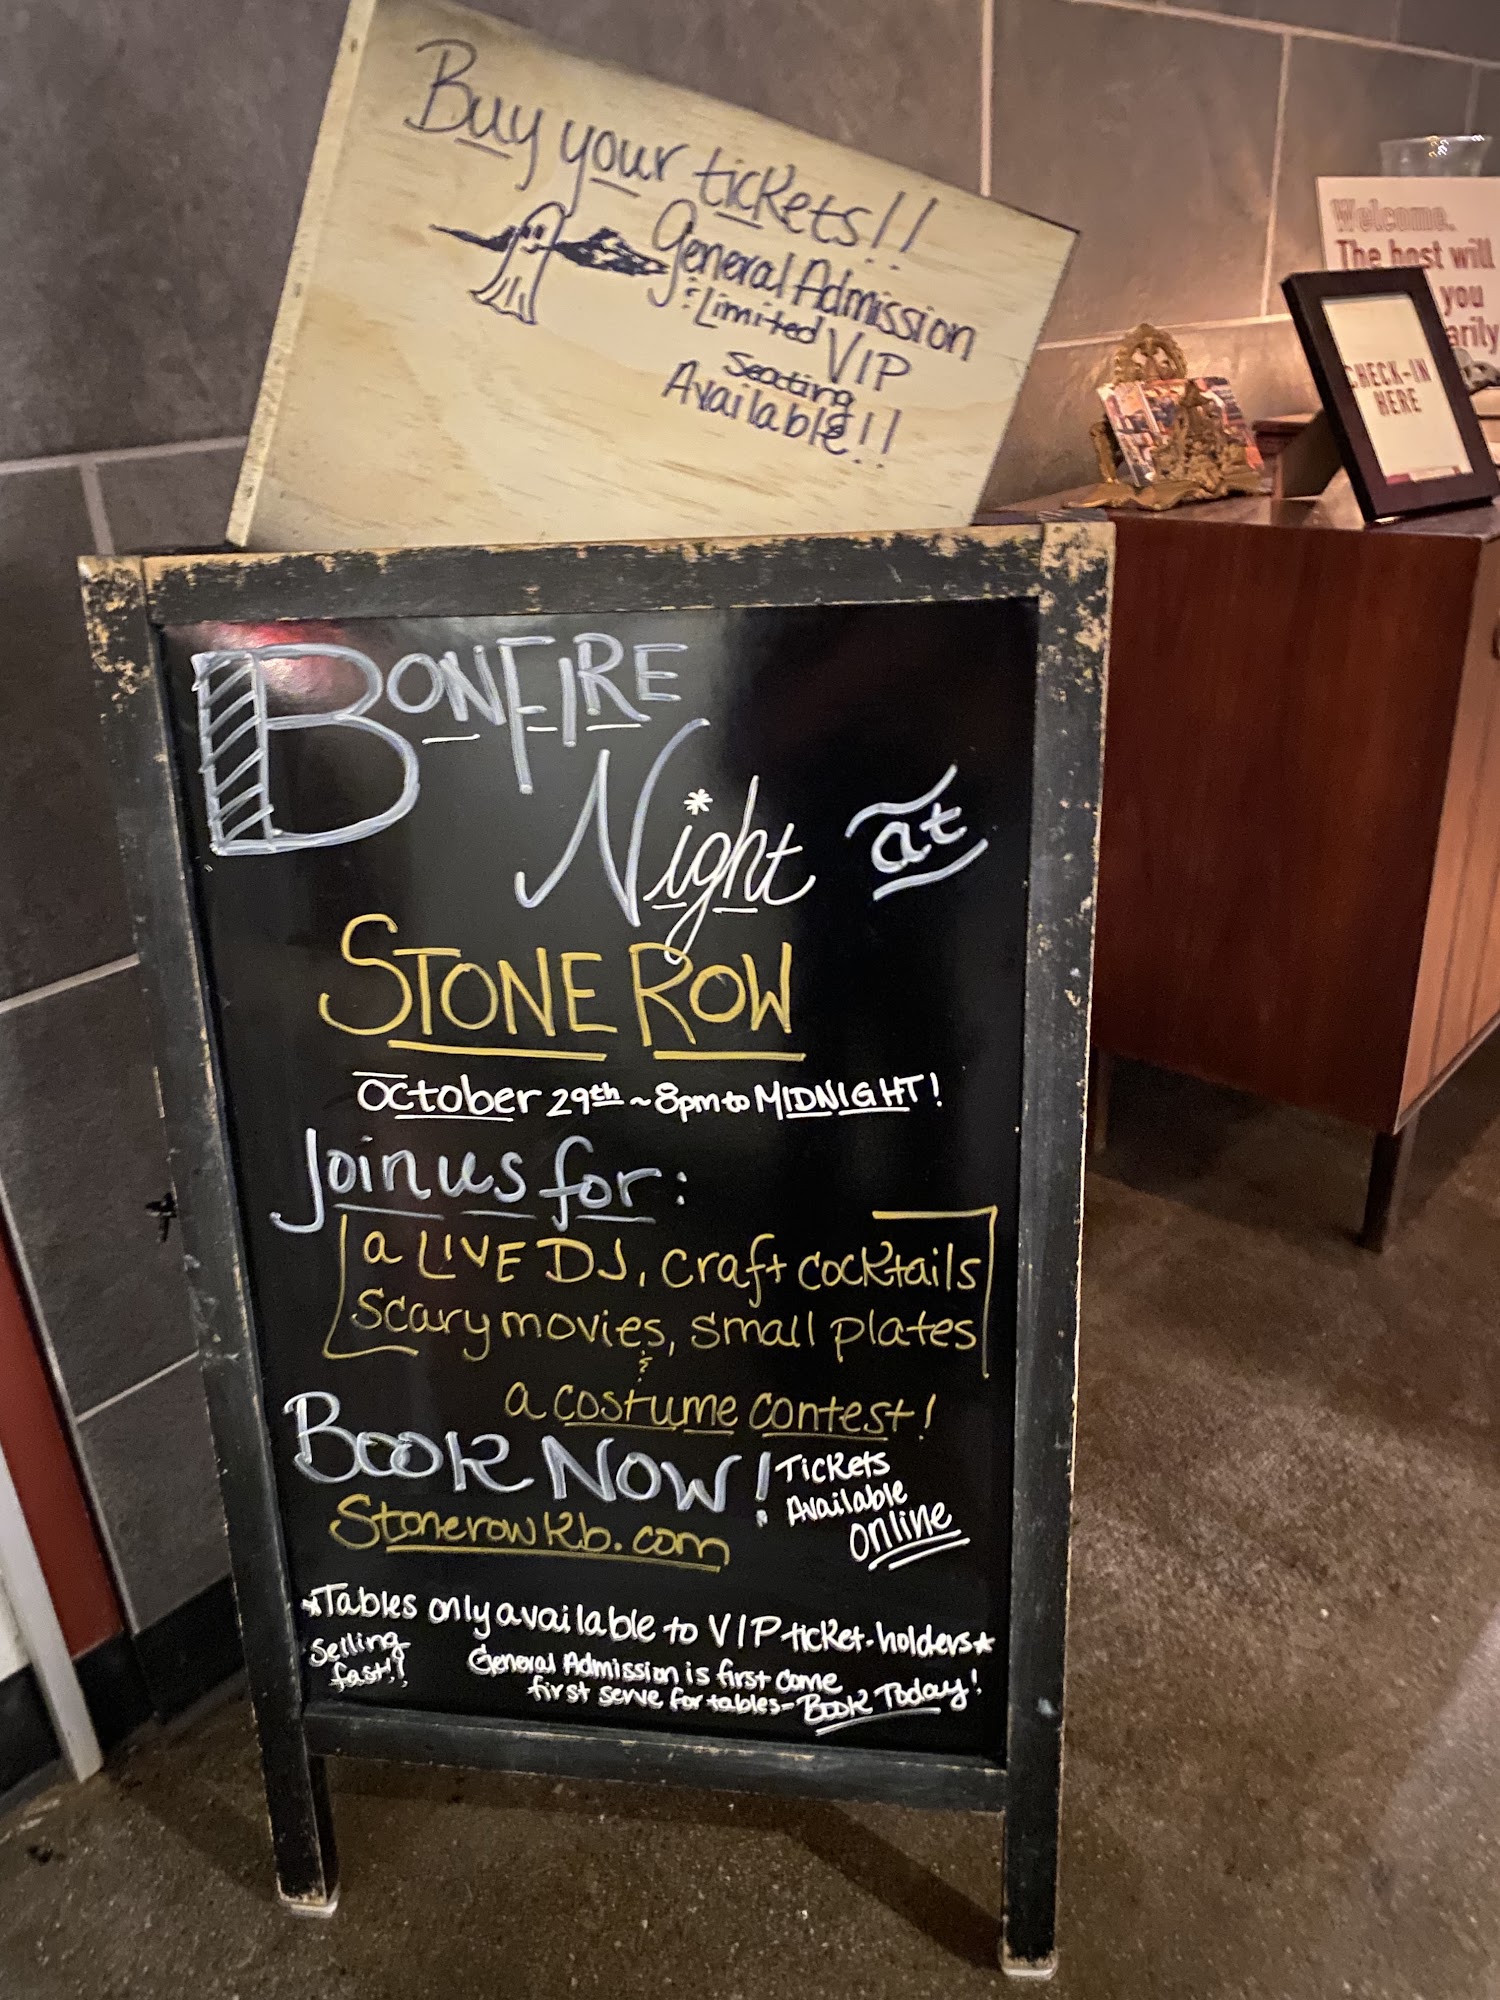 Buy your tickets!!
General Admission
& Limited VIP
Seating
Available!!
Welcome.
The host will
you
CHECK-IN
HERE
BONFIRE
Night at
STONE ROW
October 29th ~ 8pm to MIDNIGHT!
Join us for:
a LIVE DJ, craft cocktails
scary movies, small plates
&
a costume contest!
BOOK NOW!
Tickets
Available
online
Stonerowkb.com
*Tables only available to VIP ticket-holders*
Selling
fast!!
General Admission is first come
first serve for tables - Book Today!